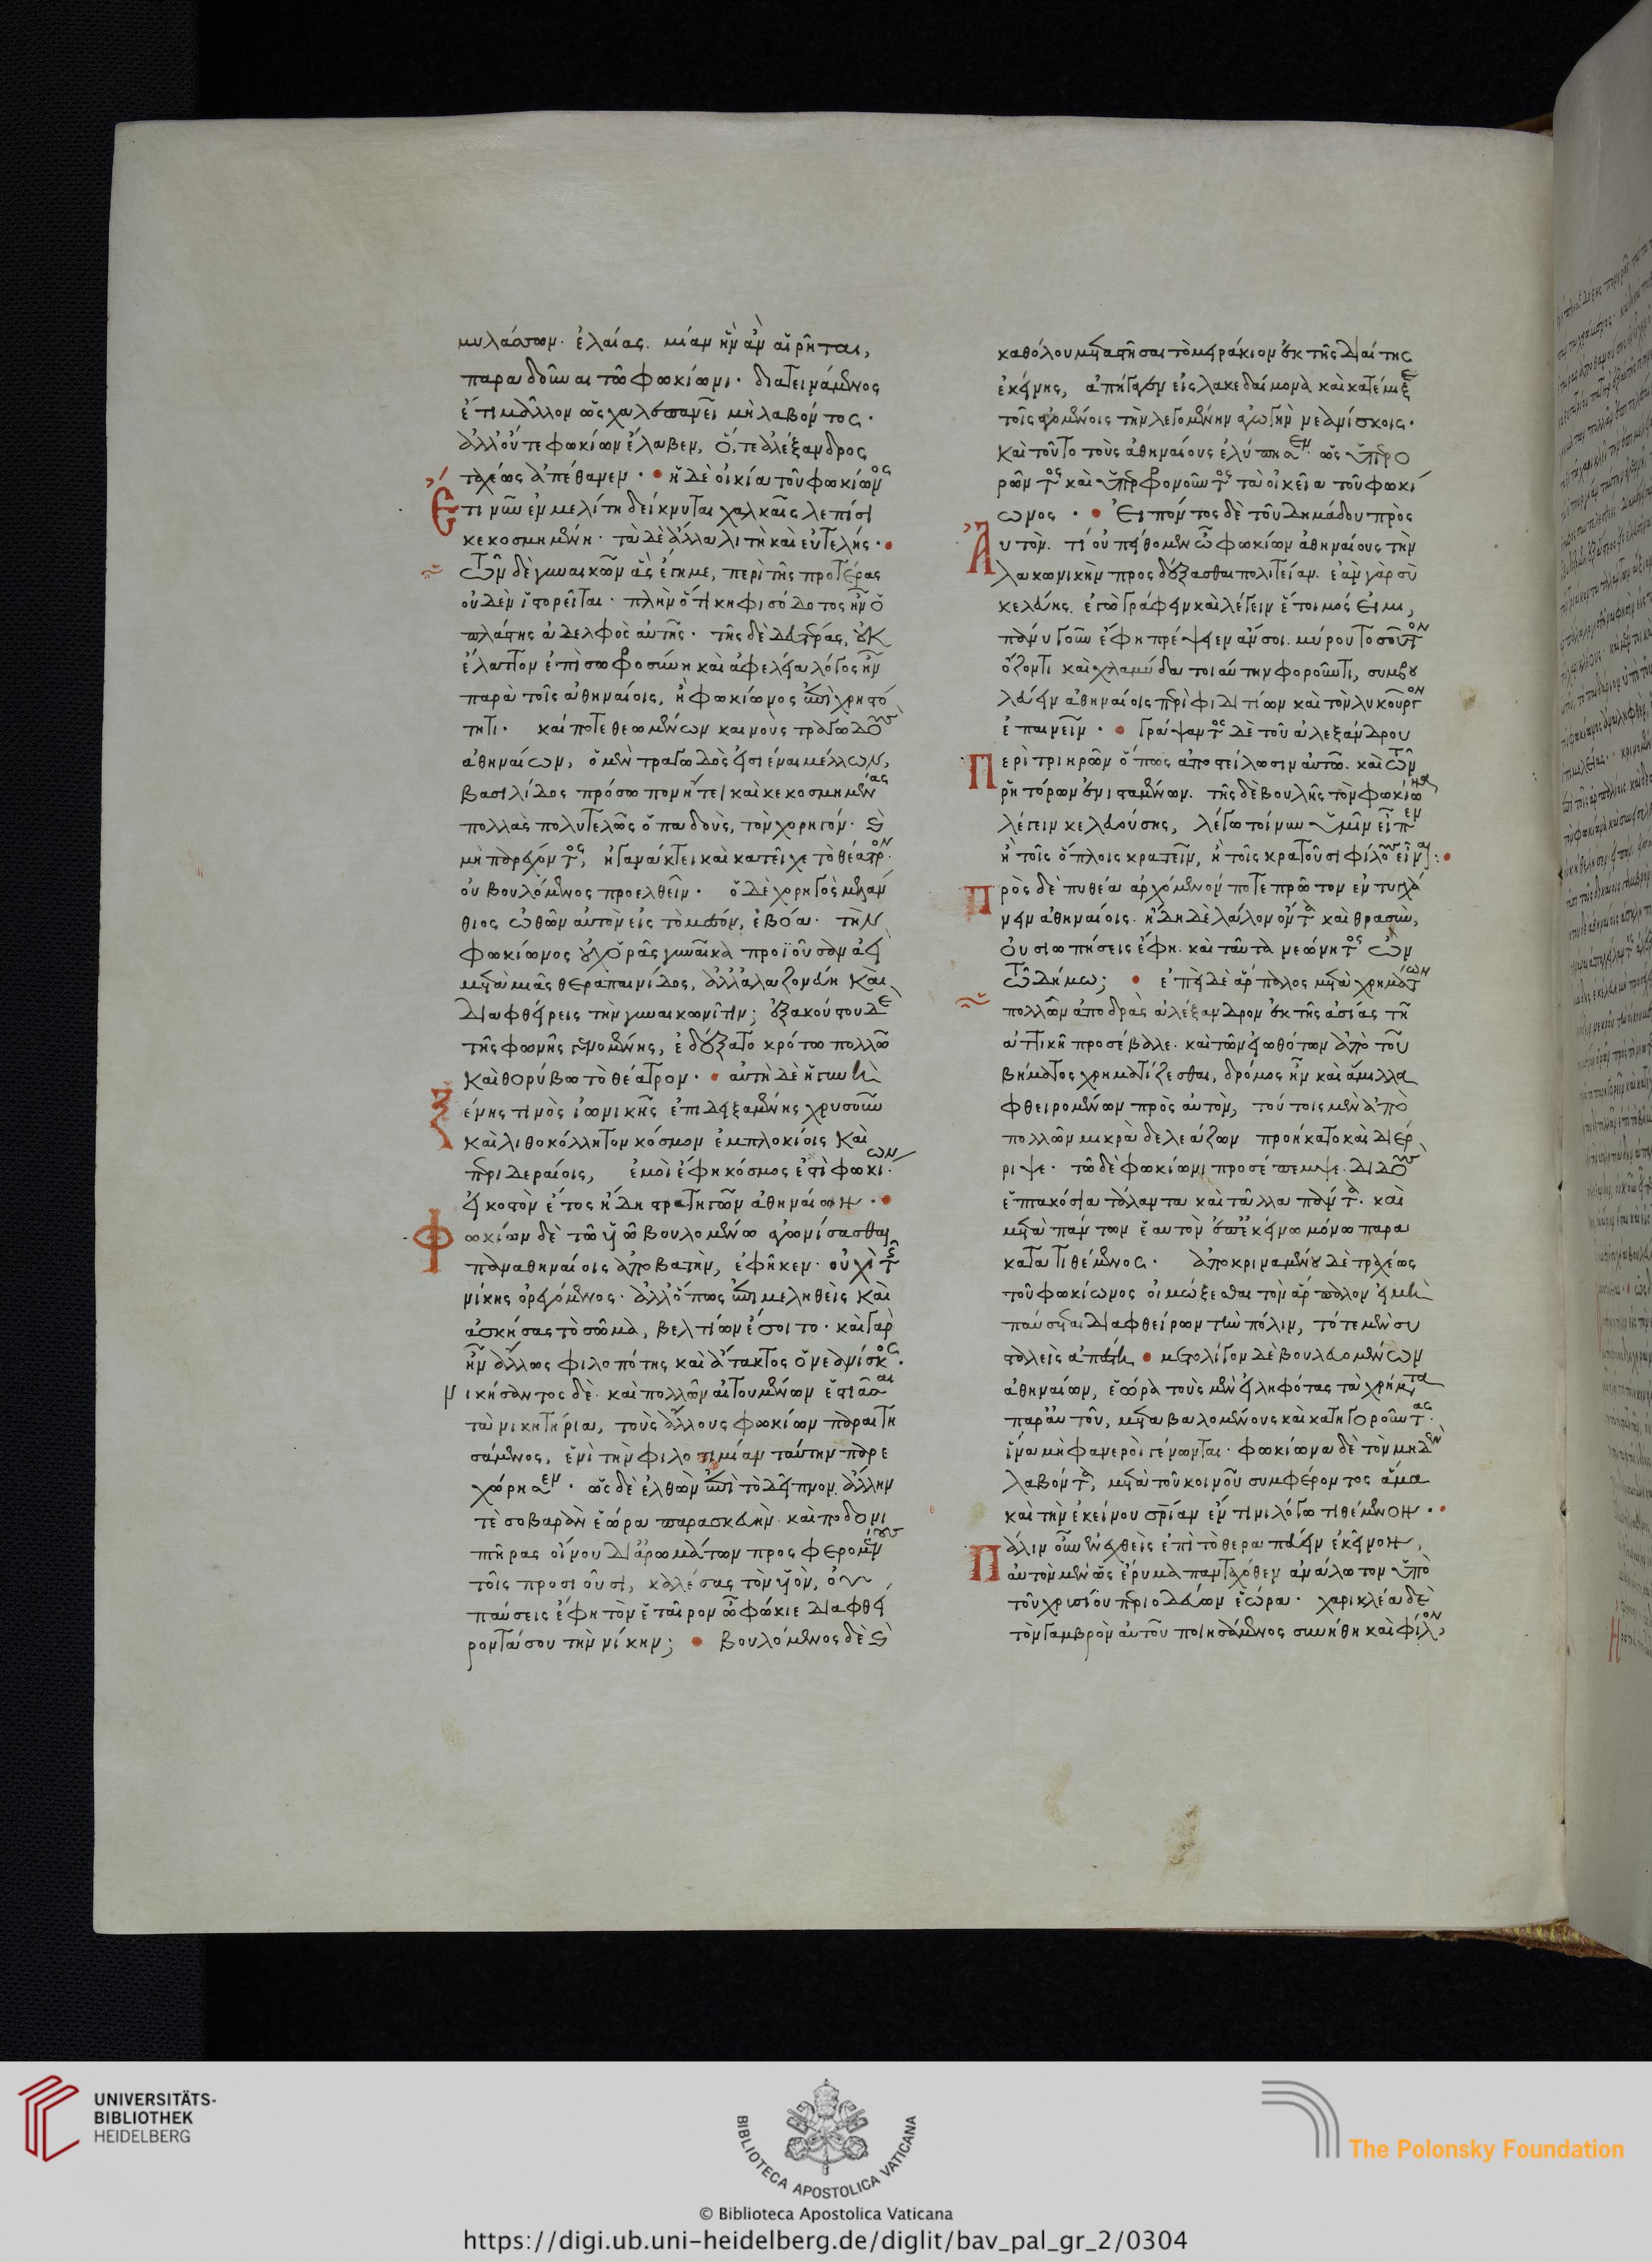 μυλάσσων. ἐλαίας. μίαν ἣν ἂν αἱρῆται,
παραδοῦναι τῶ φωκίωνι· διατεινάμενος
ἔτι μᾶλλον ὡς χαλεπανεῖ μὴ λαβόντος·
ἀλλ' οὔτε φωκίων ἔλαβεν, ὅ,τε ἀλέξανδρος
ταχέως ἀπέθανεν· ἡ δὲ οἰκία τοῦ φωκίωνος
Ἔτι νῦν ἐν μελίτη δείκνυται χαλκαῖς λεπίσι
κεκοσμημένη· τὰ δὲ ἄλλα λιτὴ καὶ εὐτελής·
τῶν δὲ γυναικῶν ἃς ἔγημε, περὶ τῆς προτέρας
οὐδὲν ἱστορεῖται· πλὴν ὅτι κηφισόδοτος ἦν ὁ
πλάστης ἀδελφὸς αὐτῆς· τῆς δὲ δευτέρας, οὐκ
ἔλαττον ἐπὶ σωφροσύνη καὶ ἀφελεία λόγος ἦν
παρὰ τοῖς ἀθηναίοις, ἢ φωκίωνος ἐπὶ χρηστό
τητι· καί ποτε θεωμένων καινοὺς τραγωδοὺς
ἀθηναίων, ὁ μὲν τραγωδὸς εἰσιέναι μέλλων,
βασιλίδος πρόσωπον ἤτει καὶ κεκοσμημένας
πολλὰς πολυτελῶς ὀπαδοὺς, τὸν χορηγόν· καὶ
μὴ παρέχοντος, ἠγανάκτει καὶ κατεῖχε τὸ θέατρον·
οὐ βουλόμενος προελθεῖν· ὁ δὲ χορηγὸς μελάν
θιος ὠθῶν αὐτὸν εἰς τὸ μέσον, ἐβόα· τὴν
φωκίωνος οὐχ ὁρᾶς γυναῖκα προϊοῦσαν ἀεὶ
μετὰ μιᾶς θεραπαινίδος, ἀλλ' ἀλαζονεύη καὶ
διαφθείρεις τὴν γυναικωνῖτιν; ἐξακούστου δὲ
τῆς φωνῆς γενομένης, ἐδέξατο κρότω πολλῶ
καὶ θορύβω τὸ θέατρον· αὐτὴ δὲ ἡ γυνὴ
Ξένης τινὸς ἰωνικῆς ἐπιδειξαμένης χρυσοῦν
καὶ λιθοκόλλητον κόσμον ἐμπλοκίοις καὶ
περιδεραίοις, ἐμοὶ ἔφη κόσμος ἐστὶ φωκίων·
εἰκοστὸν ἔτος ἤδη στρατηγῶν ἀθηναίων·
Φωκίων δὲ τῶ υἱῶ βουλομένω ἀγωνίσασθαι
παναθηναίοις ἀποβάτην, ἐφῆκεν· οὐχὶ τῆς
νίκης ὀρεγόμενος· ἀλλ' ὅπως ἐπιμεληθεὶς καὶ
ἀσκήσας τὸ σῶμα, βελτίων ἔσοιτο· καὶ γὰρ
ἦν ἄλλως φιλοπότης καὶ ἄτακτος ὁ νεανίσκος·
νικήσαντος δὲ καὶ πολλῶν αἰτουμένων ἑστιᾶσαι
τὰ νικητήρια, τοὺς ἄλλους φωκίων παραιτη
σάμενος, ἑνὶ τὴν φιλοτιμίαν ταύτην παρε
χώρησεν· ὡς δὲ ἐλθὼν ἐπὶ τὸ δεῖπνον. ἄλλην
τὲ σοβαρὰν ἑώρα παρασκευὴν καὶ ποδονι
πτῆρας οἴνου δι' ἀρωμάτων προσφερομένους
τοῖς προσιοῦσι, καλέσας τὸν υἱὸν, οὐ
παύσεις ἔφη τὸν ἑταῖρον ὦ φῶκε διαφθεί
ροντά σου τὴν νίκην; βουλόμενος δὲ καὶ
καθόλου μεταστῆσαι τὸ μειράκιον ἐκ τῆς διαίτης
ἐκείνης, ἀπήγαγεν εἰς λακεδαίμονα καὶ κατέμιξε
τοῖς ἀγομένοις τὴν λεγομένην ἀγωγὴν νεανίσκοις·
καὶ τοῦτο τοὺς ἀθηναίους ἐλύπησεν· ὡς ὑπερο
ρῶντος καὶ ὑπερφρονοῦντος τὰ οἰκεῖα τοῦ φωκί
ωνος· Εἰπόντος δὲ τοῦ δημάδου πρὸς
Αὐτὸν. τί οὐ πείθομεν ὦ φωκίων ἀθηναίους τὴν
λακωνικὴν προσδέξασθαι πολιτείαν. ἐὰν γὰρ σὺ
κελεύης. ἐγὼ γράφειν καὶ λέγειν ἕτοιμός εἰμι,
πάνυ γοῦν ἔφη πρέψειεν ἄν σοι. μύρου τοσοῦτον
ὄζοντι καὶ χλαμύδα τοιαύτην φοροῦντι, συμβου
λεύειν ἀθηναίοις περὶ φιδιτίων καὶ τὸν λυκοῦργον
ἐπαινεῖν· Γράψαντος δὲ τοῦ ἀλεξάνδρου
Περὶ τριηρῶν ὅπως ἀποστείλωσιν αὐτῶ. καὶ τῶν
ῥητόρων ἐνισταμένων. τῆς δὲ βουλῆς τὸν φωκίωνα
λέγειν κελευούσης, λέγω τοίνυν ὑμῖν εἶπεν
ἢ τοῖς ὅπλοις κρατεῖν, ἢ τοῖς κρατοῦσι φίλους εἶναι:
Πρὸς δὲ πυθέαν ἀρχόμενόν ποτε πρῶτον ἐντυγχά
νειν ἀθηναίοις. ἤδη δὲ λάλον ὄντα καὶ θρασὺν,
οὐ σιωπήσεις ἔφη. καὶ ταῦτα νεώνητος ὢν
τῶ δήμω; ἐπεὶ δὲ ἅρπαλος μετὰ χρημάτων
πολλῶν ἀποδρὰς ἀλέξανδρον ἐκ τῆς ἀσίας τῆ
ἀττικῆ προσέβαλε. καὶ τῶν εἰωθότων ἀπὸ τοῦ
βήματος χρηματίζεσθαι, δρόμος ἦν καὶ ἅμιλλα
φθειρομένων πρὸς αὐτὸν, τούτοις μὲν ἀπὸ
πολλῶν μικρὰ δελεάζων προήκατο καὶ διέρ
ριψε· τῶ δὲ φωκίωνι προσέπεμψε διδοὺς
ἑπτακόσια τάλαντα καὶ τἄλλα πάντα. καὶ
μετὰ πάντων ἑαυτὸν ἐπ' ἐκείνω μόνω παρα
κατατιθέμενος· ἀποκριναμένου δὲ τραχέως
τοῦ φωκίωνος οἰμώξεσθαι τὸν ἅρπαλον εἰ μὴ
παύσεται διαφθείρων τὴν πόλιν, τότε μὲν συ
σταλεὶς ἀπέστη μετ' ὀλίγον δὲ βουλευομένων
ἀθηναίων, ἑώρα τοὺς μὲν εἰληφότας τὰ χρήματα
παρ' αὐτοῦ, μεταβαλομένους καὶ κατηγοροῦντας·
ἵνα μὴ φανεροὶ γένωνται· φωκίωνα δὲ τὸν μηδὲν
λαβόντα, μετὰ τοῦ κοινοῦ συμφέροντος ἅμα
καὶ τὴν ἐκείνου σωτηρίαν ἔν τινι λόγω τιθέμενον·
Πάλιν οὖν ἐνεχθεὶς ἐπὶ τὸ θεραπεύειν ἐκεῖνον,
αὐτὸν μὲν ὡς ἔρυμα πανταχόθεν ἀνάλωτον ὑπὸ
τοῦ χρυσίου περιοδεύων ἑώρα· χαρικλέα δὲ
τὸν γαμβρὸν αὐτοῦ ποιησάμενος συνήθη καὶ φίλον,
UNIVERSITÄTS-
BIBLIOTHEK
HEIDELBERG
BIBLIOTECA APOSTOLICA VATICANA
The Polonsky Foundation
© Biblioteca Apostolica Vaticana
https://digi.ub.uni-heidelberg.de/diglit/bav_pal_gr_2/0304